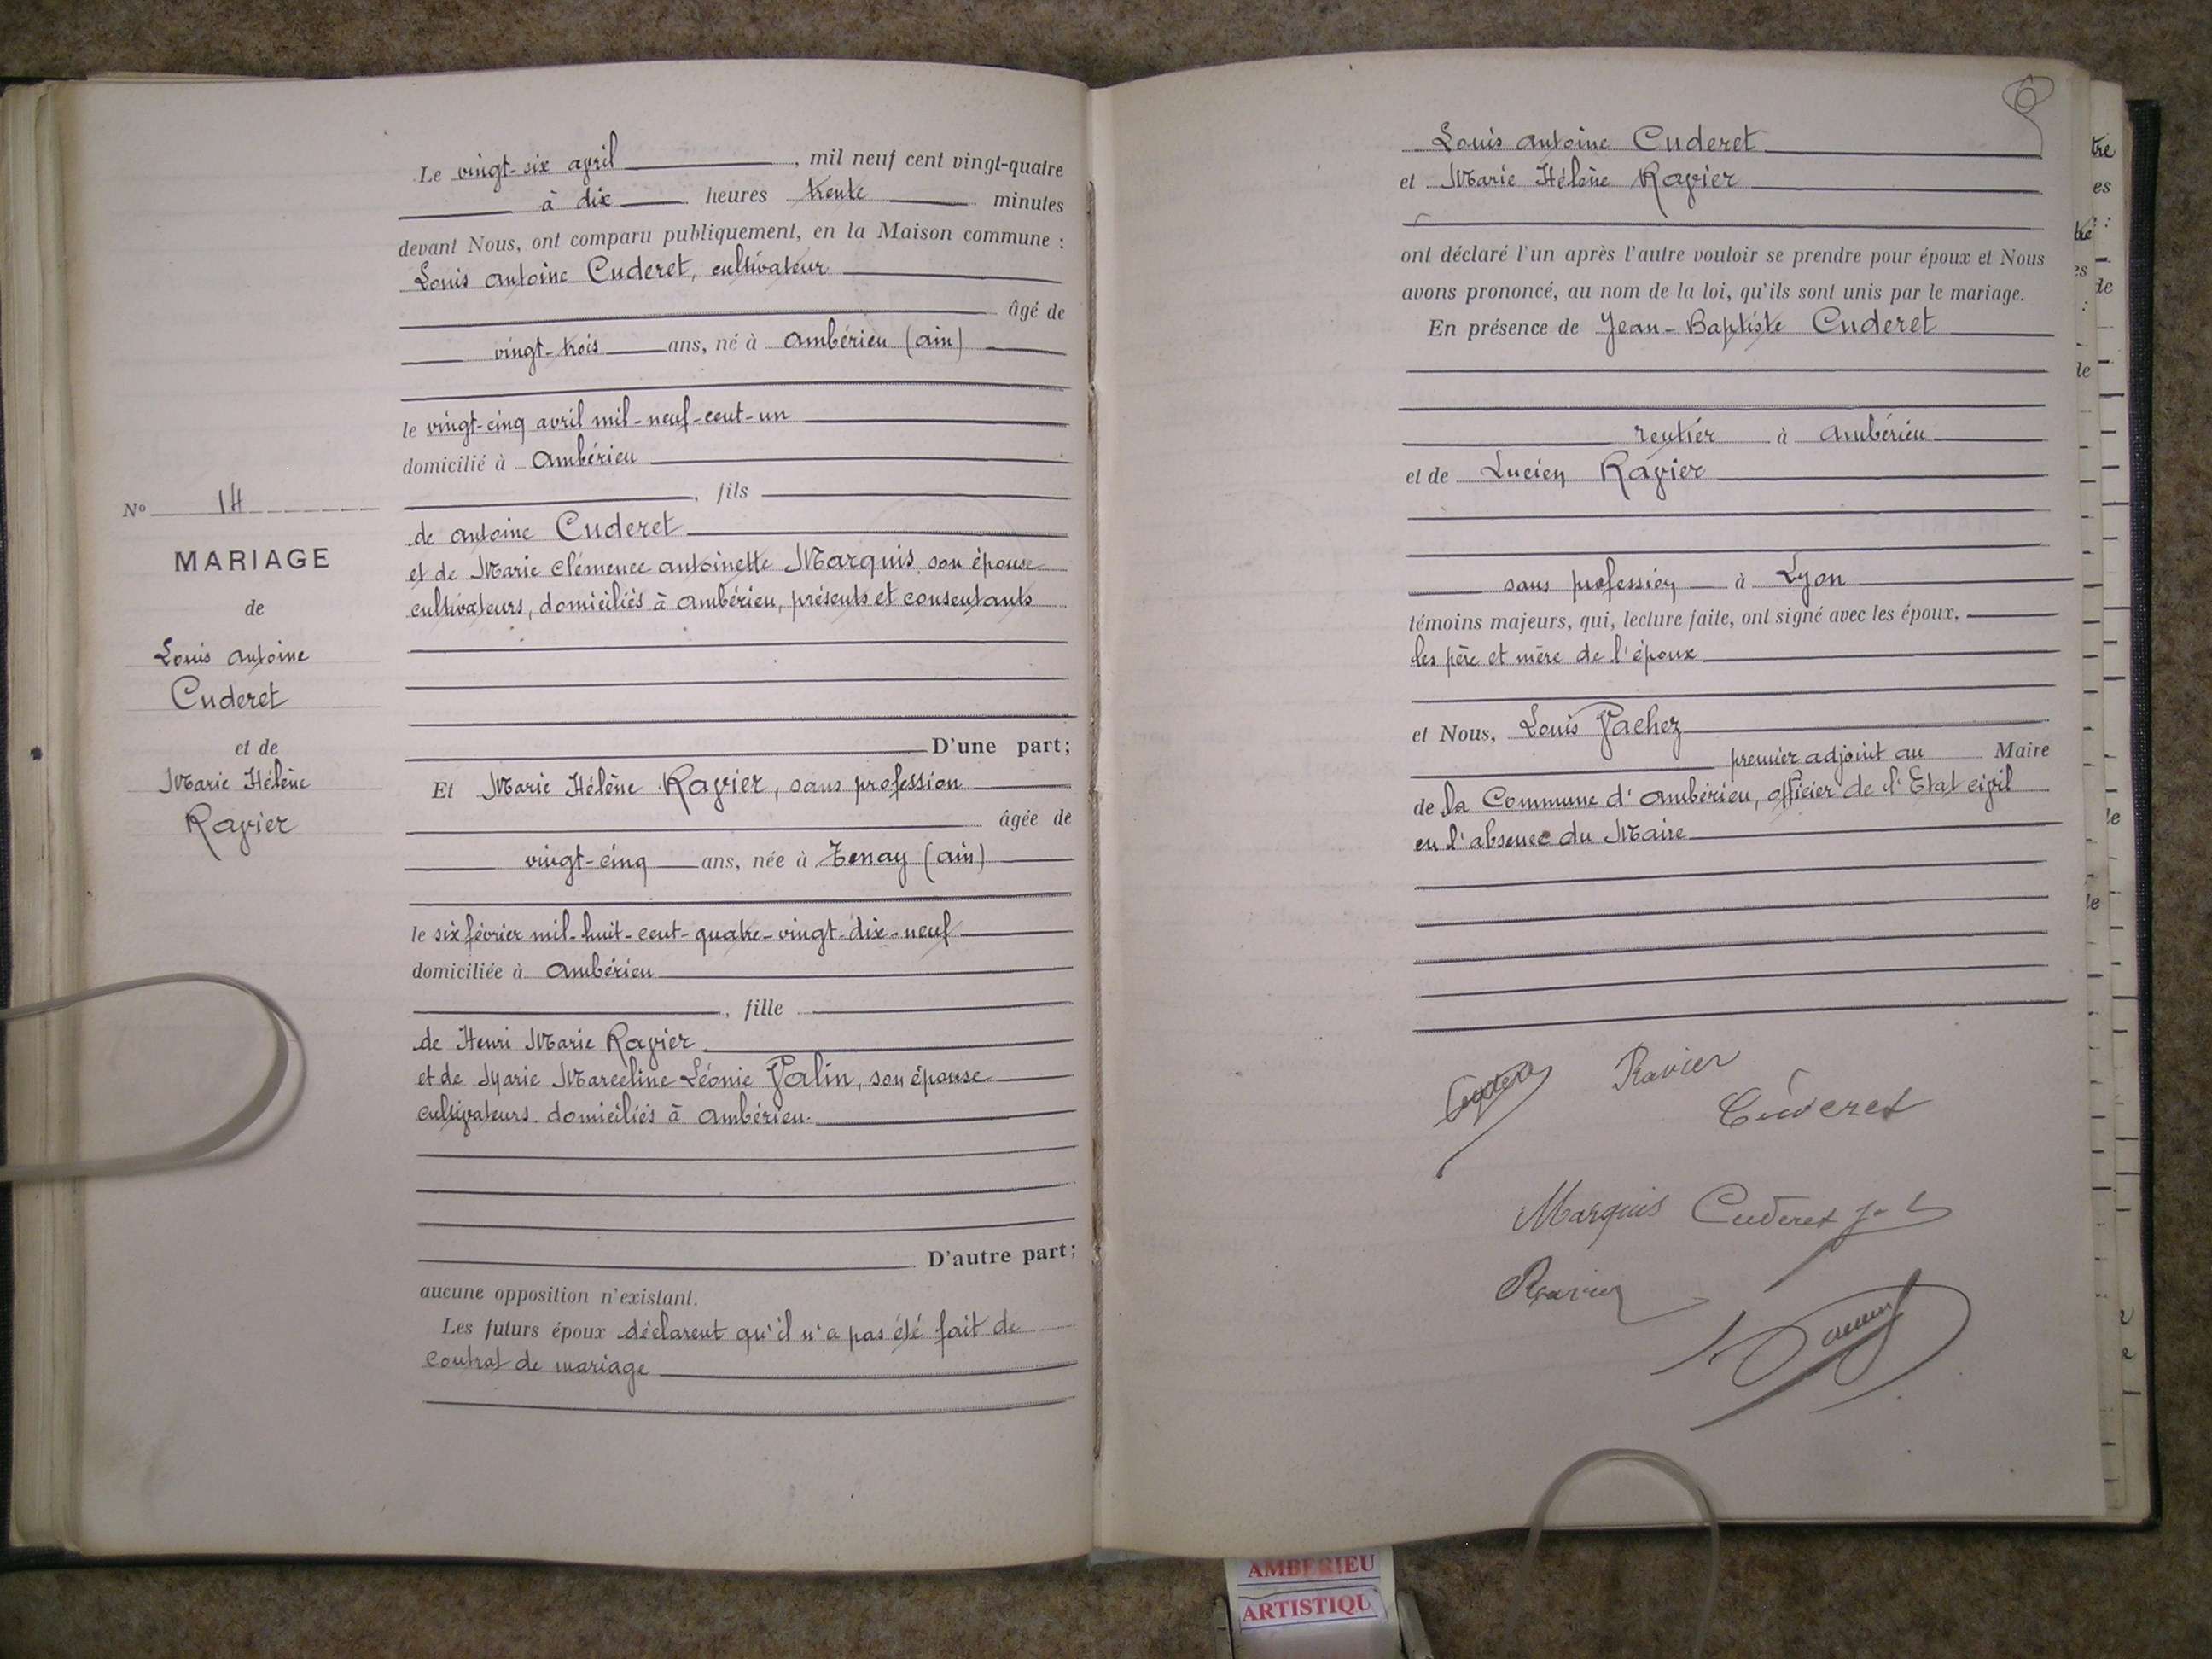 Le vingt-six avril, mil neuf cent vingt-quatre
à dix heures trente minutes
devant Nous, ont comparu publiquement, en la Maison commune :
Louis Antoine Cuderet, cultivateur
âgé de
vingt-trois ans, né à Ambérieu (Ain)
le vingt-cinq avril mil-neuf-cent-un
domicilié à Ambérieu
, fils
de Antoine Cuderet
et de Marie Clémence Antoinette Marquis son épouse
cultivateurs, domiciliés à Ambérieu, présents et consentants
D'une part;
Et Marie Hélène Ravier, sans profession
âgée de
vingt-cinq ans, née à Tenay (Ain)
le six février mil-huit-cent-quatre-vingt-dix-neuf
domiciliée à Ambérieu
, fille
de Henri Marie Ravier
et de Marie Marceline Léonie Valin, son épouse
cultivateurs. domiciliés à Ambérieu.
D'autre part;
aucune opposition n'existant.
Les futurs époux déclarent qu'il n'a pas été fait de
contrat de mariage
No 14
MARIAGE
de
Louis Antoine
Cuderet
et de
Marie Hélène
Ravier
Louis Antoine Cuderet
et Marie Hélène Ravier
ont déclaré l'un après l'autre vouloir se prendre pour époux et Nous
avons prononcé, au nom de la loi, qu'ils sont unis par le mariage.
En présence de Jean-Baptiste Cuderet
rentier à Ambérieu
et de Lucien Ravier
sans profession à Lyon
témoins majeurs, qui, lecture faite, ont signé avec les époux,
les père et mère de l'époux
et Nous, Louis Vachez
premier adjoint au Maire
de la Commune d'Ambérieu, officier de l'Etat civil
en l'absence du Maire
Ravier
Cuderet
Marquis Cuderet
Ravier
AMBERIEU
ARTISTIQU